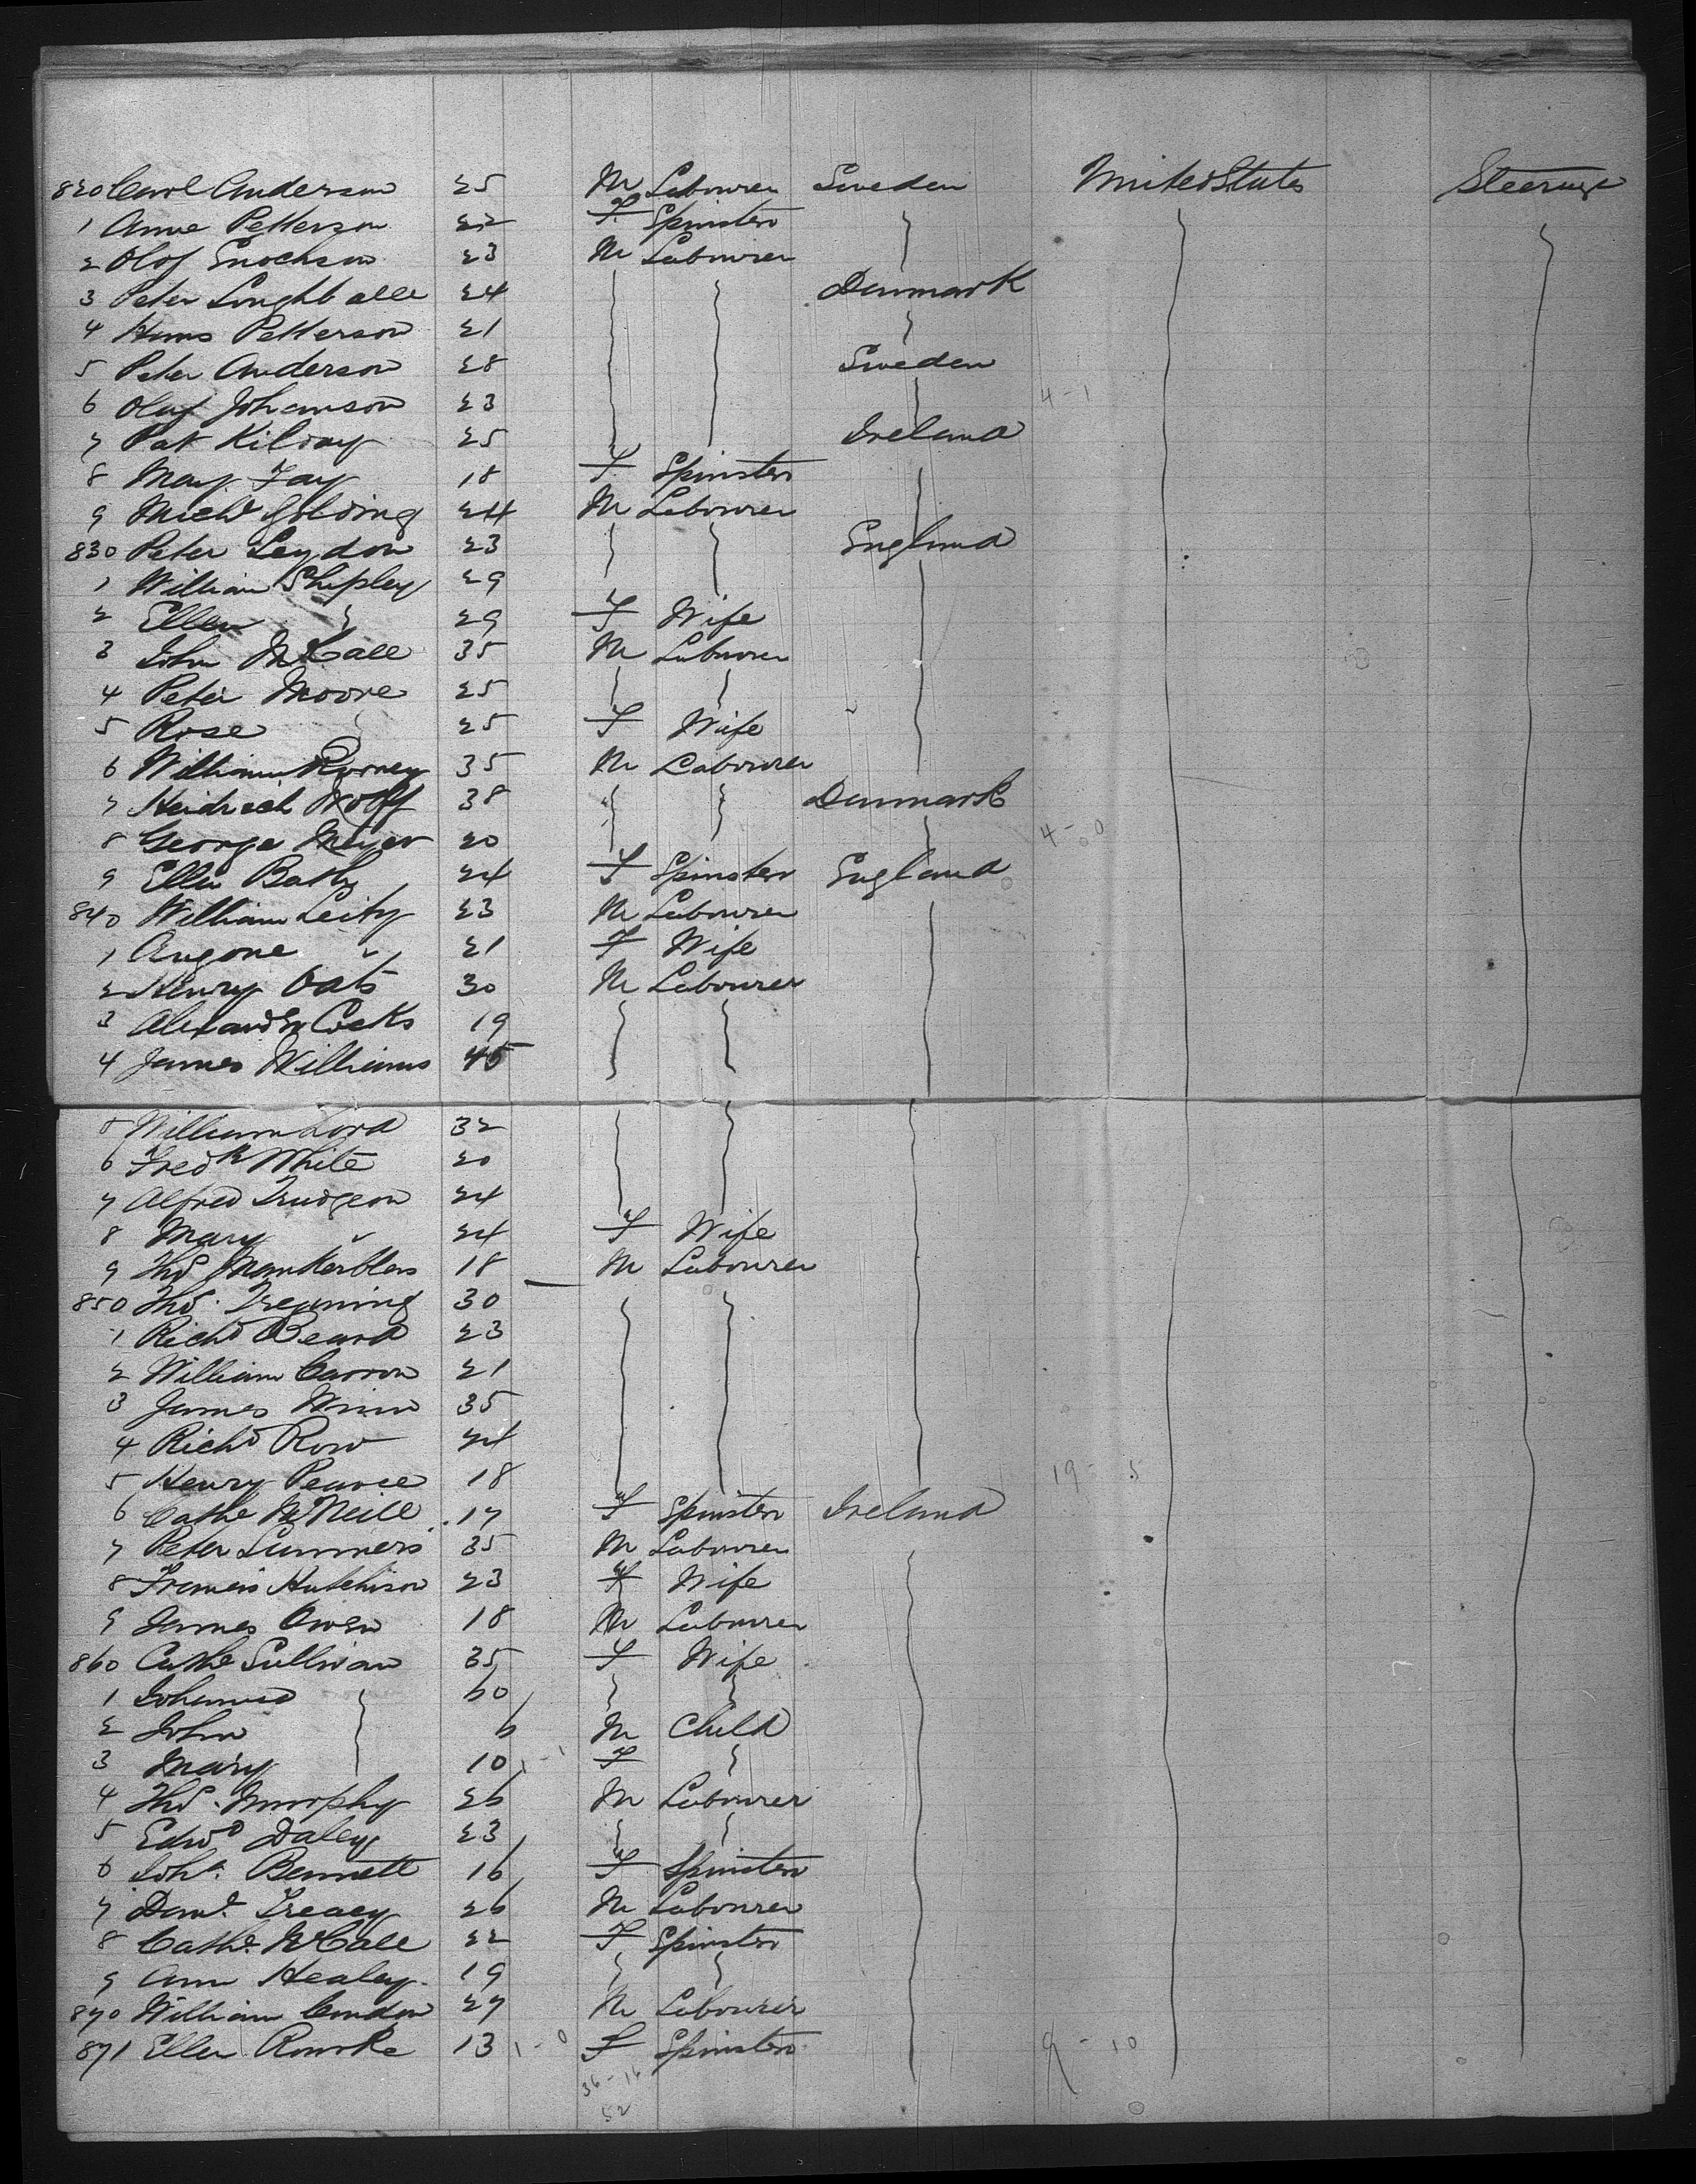 820 Carl Anderson 25 M Labourer Sweden United States Steerage
1 Anne Petterson 22 F Spinster
2 Olof Enochson 23 M Labourer
3 Peter 24 Denmark
4 Hans Petterson 21
5 Peter Anderson 28 Sweden
6 Oluf Johanson 23 4-1
7 Pat Kilroy 25 Ireland
8 Mary Fay 18 F Spinster
9 Michl Golding 24 M Labourer
830 Peter Leydon 23 England
1 William Shipley 29
2 Ellen 29 F Wife
3 John McCall 35 M Labourer
4 Peter Moore 25
5 Rose 25 F Wife
6 William 35 M Labourer
7 Heidrich Wolff 38 Denmark
8 George Meyer 20 4-0
9 Ellen Bath 24 F Spinster England
840 William Leity 23 M Labourer
1 Angone " 21 F Wife
2 Henry Oats 30 M Labourer
3 Alexandr Cocks 19
4 James Williams 45
5 William Lord 32
6 Fredk White 20
7 Alfred Trudgeon 24
8 Mary " 24 F Wife
9 Thos 18 M Labourer
850 Thos. Trenning 30
1 Richd Beard 23
2 William Carron 21
3 James Winn 35
4 Richd Row 24
5 Henry Pearce 18 19-5
6 Cathe McNeill 17 F Spinster Ireland
7 Peter Summers 35 M Labourer
8 Francis Hutchison 23 F Wife
9 James Owen 18 M Labourer
860 Cathe Sullivan 35 F Wife
1 Johanna 60
2 John 6 M Child
3 Mary 10 1-1 F
4 Thos. Murphy 26 M Labourer
5 Edwd Daley 23
6 Joha. Bennett 16 F Spinster
7 Danl. Treacy 26 M Labourer
8 Cathe. McCall 22 F Spinster
9 Ann Healey 19
870 William Condon 27 M Labourer
871 Ellen Rourke 13 1-0 F Spinster 9-10
36-16
52